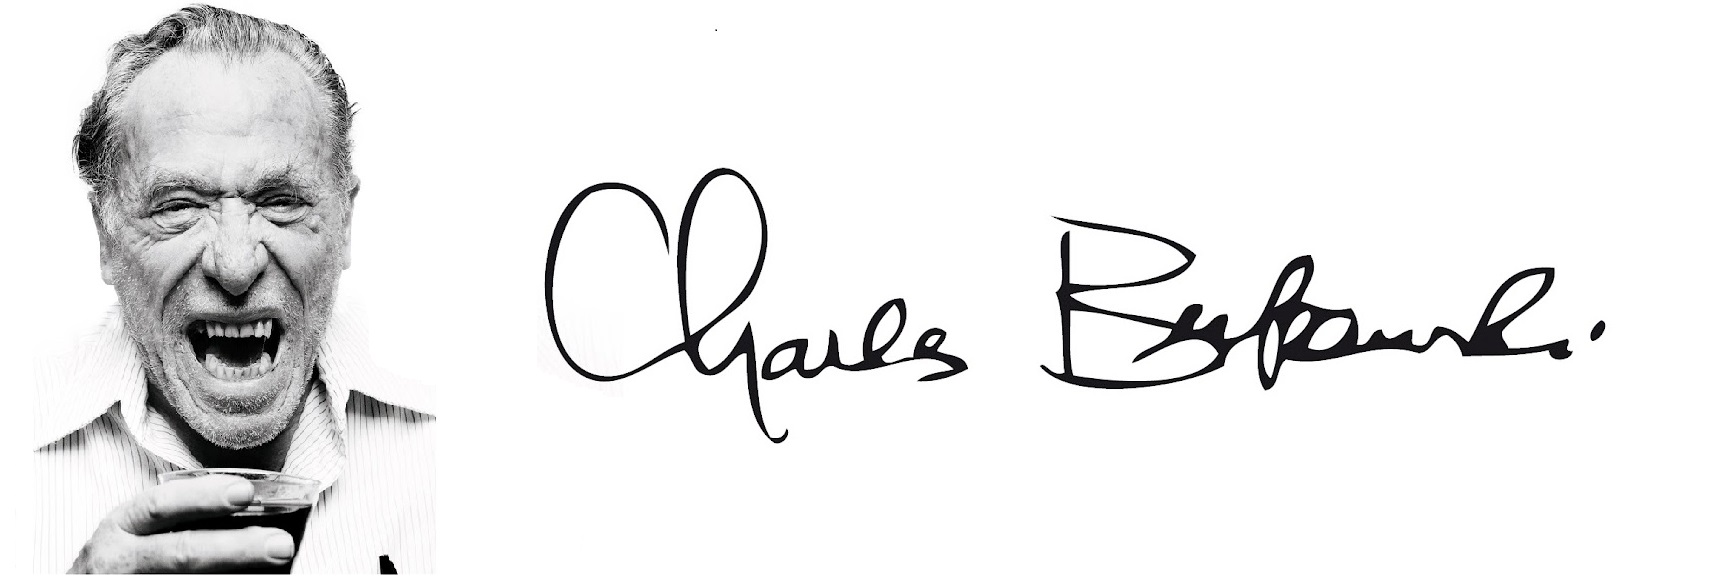 Charles Bukowski.